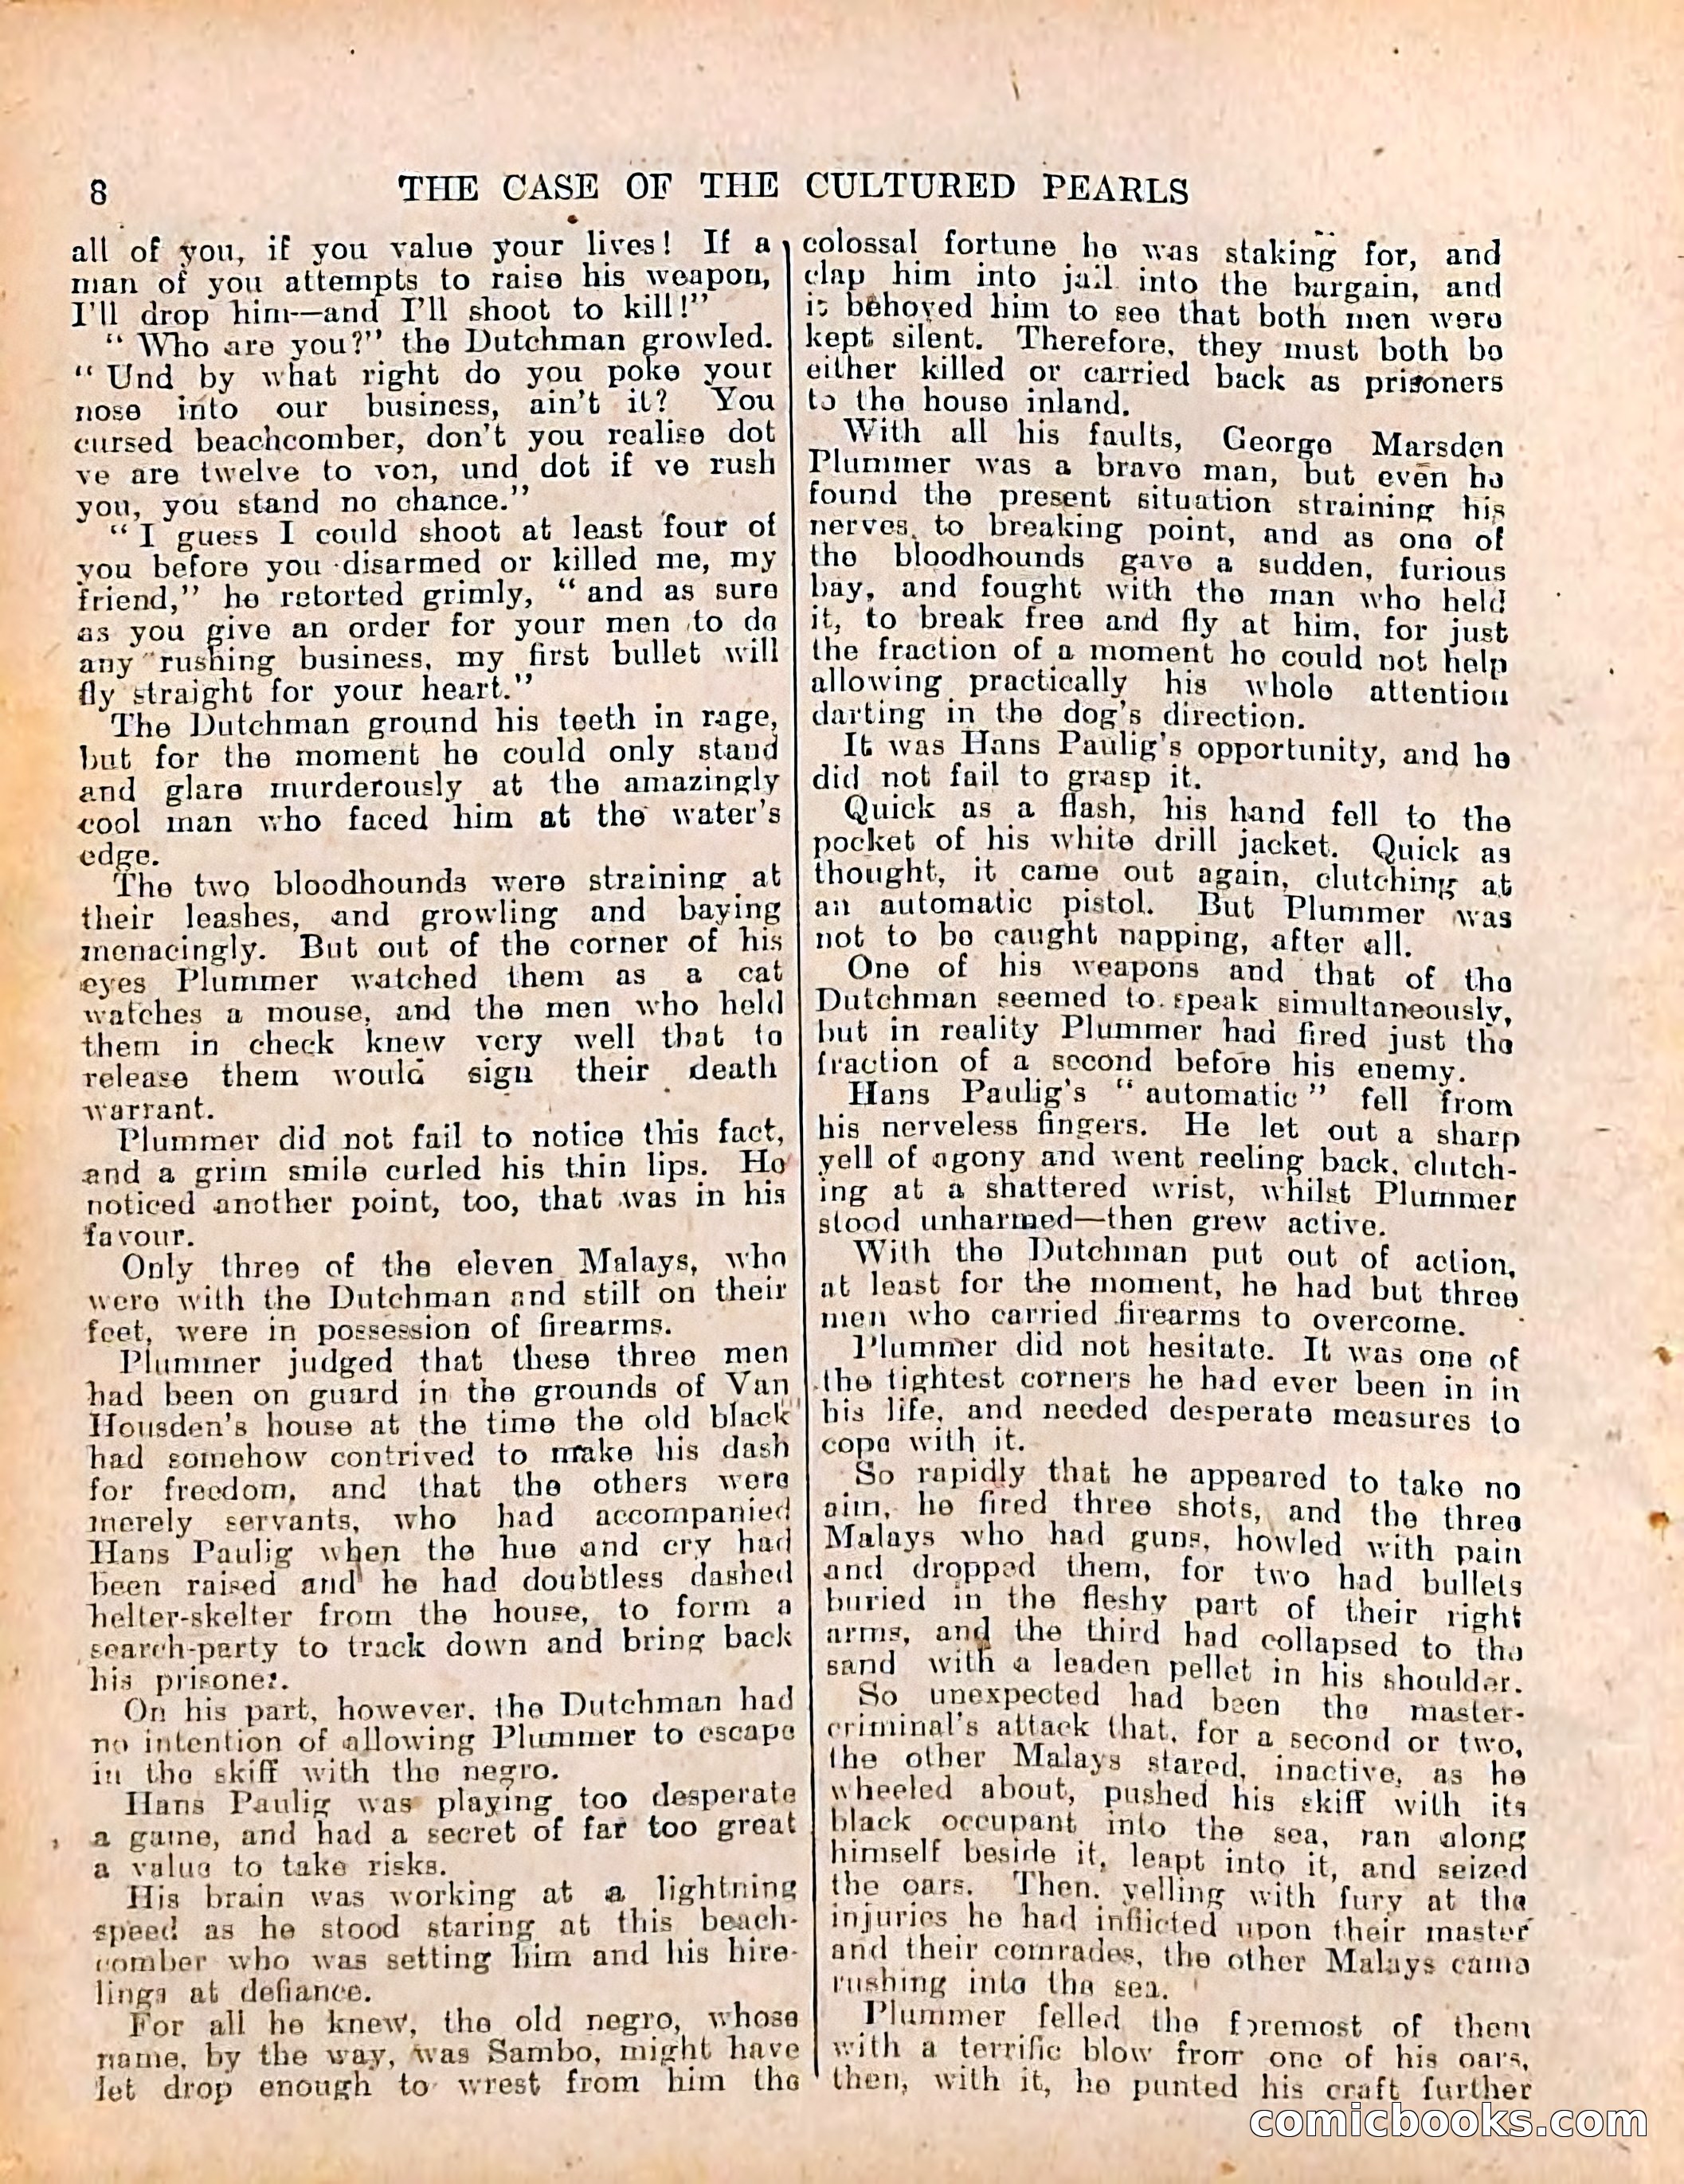 8 THE CASE OF THE CULTURED PEARLS
all of you, if you value your lives! If a
man of you attempts to raise his weapon,
I'll drop him—and I'll shoot to kill!"
"Who are you?" the Dutchman growled.
"Und by what right do you poke your
nose into our business, ain't it? You
cursed beachcomber, don't you realise dot
ve are twelve to von, und dot if ve rush
you, you stand no chance."
"I guess I could shoot at least four of
you before you disarmed or killed me, my
friend," he retorted grimly, "and as sure
as you give an order for your men to do
any rushing business, my first bullet will
fly straight for your heart."
The Dutchman ground his teeth in rage,
but for the moment he could only stand
and glare murderously at the amazingly
cool man who faced him at the water's
edge.
The two bloodhounds were straining at
their leashes, and growling and baying
menacingly. But out of the corner of his
eyes Plummer watched them as a cat
watches a mouse, and the men who held
them in check knew very well that to
release them would sign their death
warrant.
Plummer did not fail to notice this fact,
and a grim smile curled his thin lips. He
noticed another point, too, that was in his
favour.
Only three of the eleven Malays, who
were with the Dutchman and still on their
feet, were in possession of firearms.
Plummer judged that these three men
had been on guard in the grounds of Van
Housden's house at the time the old black
had somehow contrived to make his dash
for freedom, and that the others were
merely servants, who had accompanied
Hans Paulig when the hue and cry had
been raised and he had doubtless dashed
helter-skelter from the house, to form a
search-party to track down and bring back
his prisoner.
On his part, however, the Dutchman had
no intention of allowing Plummer to escape
in the skiff with the negro.
Hans Paulig was playing too desperate
a game, and had a secret of far too great
a value to take risks.
His brain was working at a lightning
speed as he stood staring at this beach-
comber who was setting him and his hire-
lings at defiance.
For all he knew, the old negro, whose
name, by the way, was Sambo, might have
let drop enough to wrest from him the
colossal fortune he was staking for, and
clap him into jail into the bargain, and
it behoved him to see that both men were
kept silent. Therefore, they must both be
either killed or carried back as prisoners
to the house inland.
With all his faults, George Marsden
Plummer was a brave man, but even he
found the present situation straining his
nerves to breaking point, and as one of
the bloodhounds gave a sudden, furious
bay, and fought with the man who held
it, to break free and fly at him, for just
the fraction of a moment he could not help
allowing practically his whole attention
darting in the dog's direction.
It was Hans Paulig's opportunity, and he
did not fail to grasp it.
Quick as a flash, his hand fell to the
pocket of his white drill jacket. Quick as
thought, it came out again, clutching at
an automatic pistol. But Plummer was
not to be caught napping, after all.
One of his weapons and that of the
Dutchman seemed to speak simultaneously,
but in reality Plummer had fired just the
fraction of a second before his enemy.
Hans Paulig's "automatic" fell from
his nerveless fingers. He let out a sharp
yell of agony and went reeling back, clutch-
ing at a shattered wrist, whilst Plummer
stood unharmed—then grew active.
With the Dutchman put out of action,
at least for the moment, he had but three
men who carried firearms to overcome.
Plummer did not hesitate. It was one of
the tightest corners he had ever been in in
his life, and needed desperate measures to
cope with it.
So rapidly that he appeared to take no
aim, he fired three shots, and the three
Malays who had guns, howled with pain
and dropped them, for two had bullets
buried in the fleshy part of their right
arms, and the third had collapsed to the
sand with a leaden pellet in his shoulder.
So unexpected had been the master-
criminal's attack that, for a second or two,
the other Malays stared, inactive, as he
wheeled about, pushed his skiff with its
black occupant into the sea, ran along
himself beside it, leapt into it, and seized
the oars. Then, yelling with fury at the
injuries he had inflicted upon their master
and their comrades, the other Malays came
rushing into the sea.
Plummer felled the foremost of them
with a terrific blow from one of his oars,
then, with it, he punted his craft further
comicbooks.com